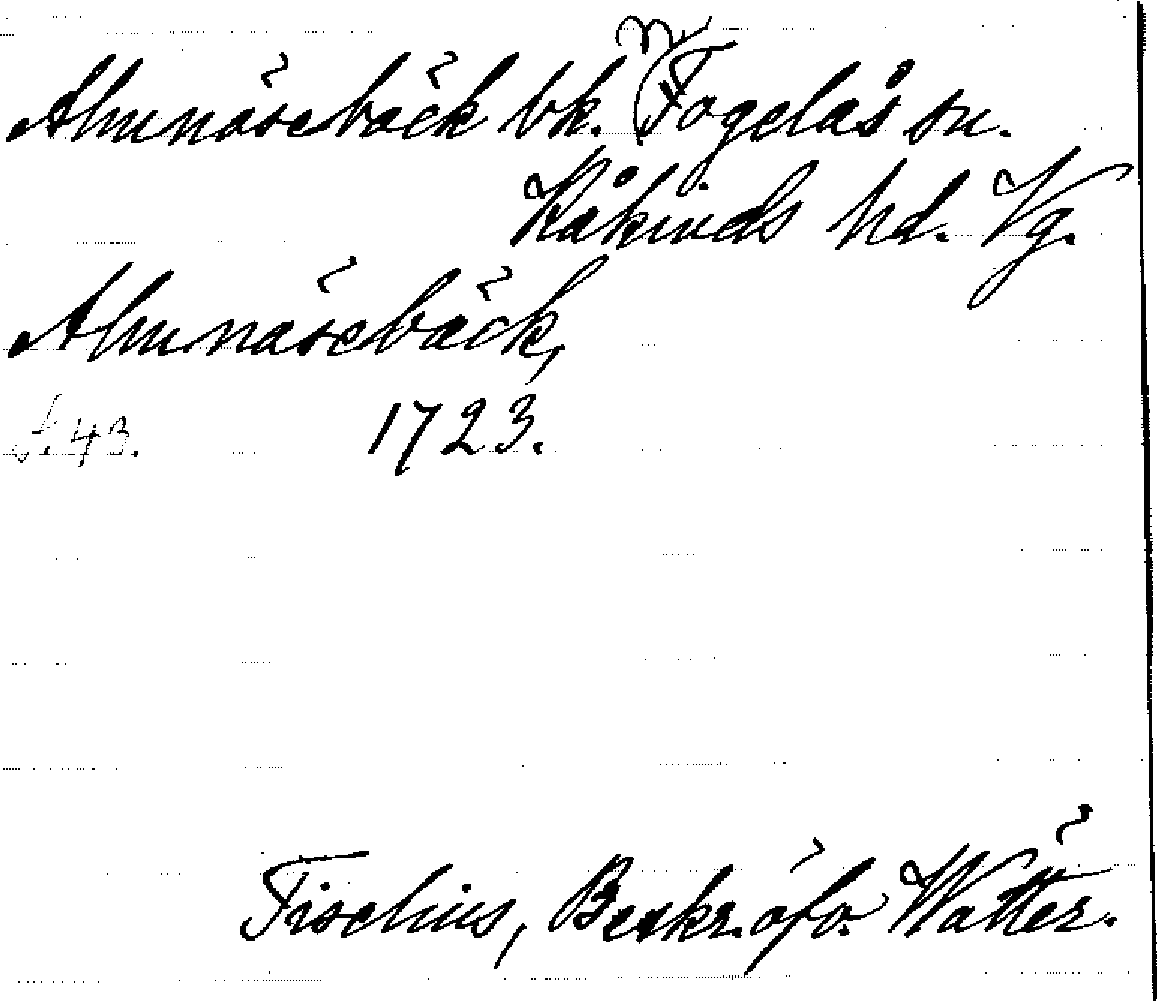 N.
Almnäsebäck bk. Fogelås sn.
Kåkinds hd. Vg.
Almnäsebäck,
s. 43. 1723.
Tiselius, Beskr. öfv. Wätter.